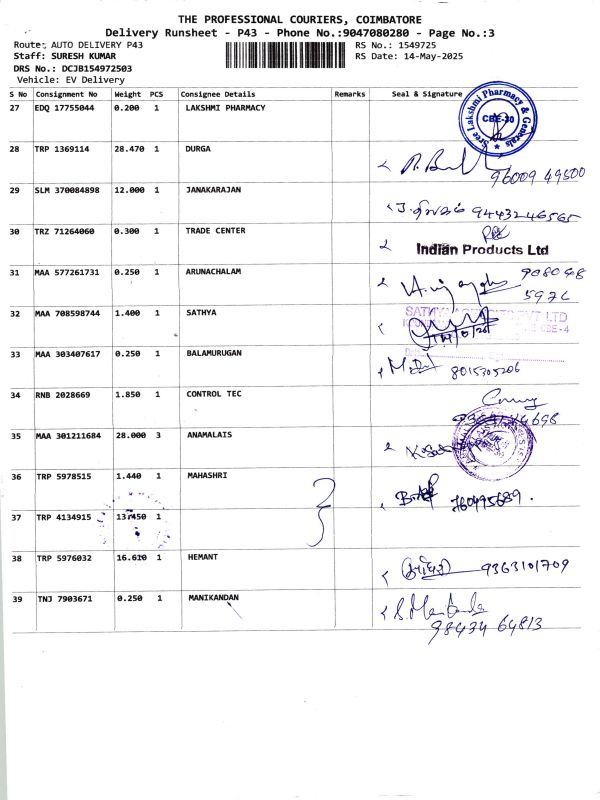 THE PROFESSIONAL COURIERS, COIMBATORE
Delivery Runsheet - P43 - Phone No.:9047080280 - Page No.:3
Route: AUTO DELIVERY P43 RS No.: 1549725
Staff: SURESH KUMAR RS Date: 14-May-2025
DRS No.: DCJB154972503
Vehicle: EV Delivery
S No Consignment No Weight PCS Consignee Details Remarks Seal & Signature
27 EDQ 17755044 0.200 1 LAKSHMI PHARMACY Sree Lakshmi Pharmacy & Generals CBE-30
28 TRP 1369114 28.470 1 DURGA
96009 49500
29 SLM 370084898 12.000 1 JANAKARAJAN 9443246565
30 TRZ 71264060 0.300 1 TRADE CENTER
Indian Products Ltd
31 MAA 577261731 0.250 1 ARUNACHALAM
32 MAA 708598744 1.400 1 SATHYA PVT LTD
CBE-4
33 MAA 303407617 0.250 1 BALAMURUGAN
8015305206
34 RNB 2028669 1.850 1 CONTROL TEC
35 MAA 301211684 28.000 3 ANAMALAIS
36 TRP 5978515 1.440 1 MAHASHRI
37 TRP 4134915 13.450 1
38 TRP 5976032 16.610 1 HEMANT 9363101709
39 TNJ 7903671 0.250 1 MANIKANDAN
98434 64813